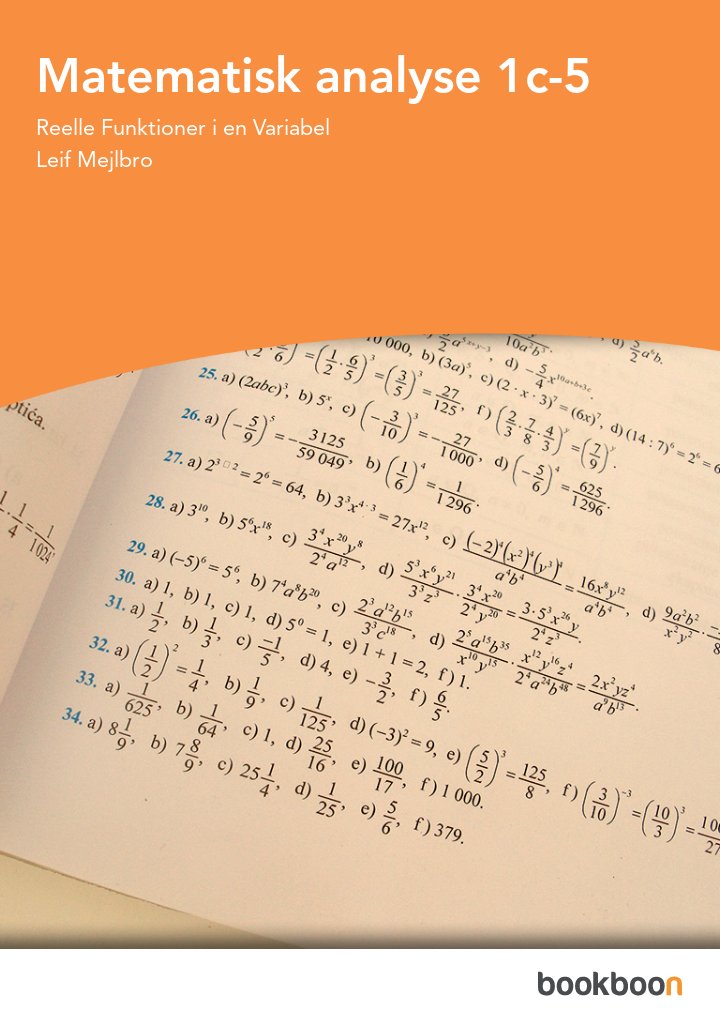 Matematisk analyse 1c-5
Reelle Funktioner i en Variabel
Leif Mejlbro
10 000, b) (3a)⁵, c) (2 · x · 3)⁷ = (6x)⁷, d) (14 : 7)⁶ = 2⁶ = 6
25. a) (2abc)³, b) 5ˣ, c) (−3/10)³ = −27/1000, d) (−5/6)⁴ = 625/1296.
26. a) (−5/9)⁵ = −3125/59 049, b) (1/6)⁴ = 1/1296.
27. a) 2³ □ ² = 2⁶ = 64, b) 3³x⁴ · ³ = 27x¹², c) (−2)⁴(x²)⁴(y³)⁴/a⁴b⁴ = 16x⁸y¹²/a⁴b⁴, d) 9a²b²/x²y²
28. a) 3¹⁰, b) 5⁶x¹⁸, c) 3⁴x²⁰y⁸/2⁴a¹², d) 5³x⁶y²¹/3³z³ · 3⁴x²⁰/2⁴y²⁰ = 3 · 5³x²⁶y/2⁴z³.
29. a) (−5)⁶ = 5⁶, b) 7⁴a⁸b²⁰, c) 2³a¹²b¹⁵/3³c¹⁸, d) 2⁵a¹⁵b³⁵/x¹⁰y¹⁵ · x¹²y¹⁶z⁴/2⁴a²⁴b⁴⁸ = 2x²yz⁴/a⁹b¹³.
30. a) 1, b) 1, c) 1, d) 5⁰ = 1, e) 1 + 1 = 2, f) 1.
31. a) 1/2, b) 1/3, c) −1/5, d) 4, e) −3/2, f) 6/5.
32. a) (1/2)² = 1/4, b) 1/9, c) 1/125, d) (−3)² = 9, e) (5/2)³ = 125/8, f) (3/10)⁻³ = (10/3)³ =
33. a) 1/625, b) 1/64, c) 1, d) 25/16, e) 100/17, f) 1 000.
34. a) 8 1/9, b) 7 8/9, c) 25 1/4, d) 1/25, e) 5/6, f) 379.
bookboon